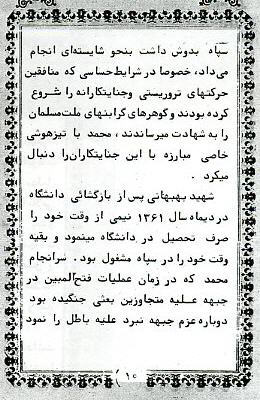 سپاه بدوش داشت بنحو شایسته‌ای انجام
می‌داد، خصوصا در شرایط حساسی که منافقین
حرکتهای تروریستی وجنایتکارانه را شروع
کرده بودند و گوهرهای گرانبهای ملت مسلمان
را به شهادت میرساندند، محمد با تیزهوشی
خاصی مبارزه با این جنایتکاران را دنبال
میکرد .
شهید بهبهانی پس از بازگشائی دانشگاه
در دیماه سال ۱۳۶۱ نیمی از وقت خود را
صرف تحصیل در دانشگاه مینمود و بقیه
وقت خود را در سپاه مشغول بود. سرانجام
محمد که در زمان عملیات فتح‌المبین در
جبهه علیه متجاوزین بعثی جنگیده بود
دوباره عزم جبهه نبرد علیه باطل را نمود
( ۱۰ )